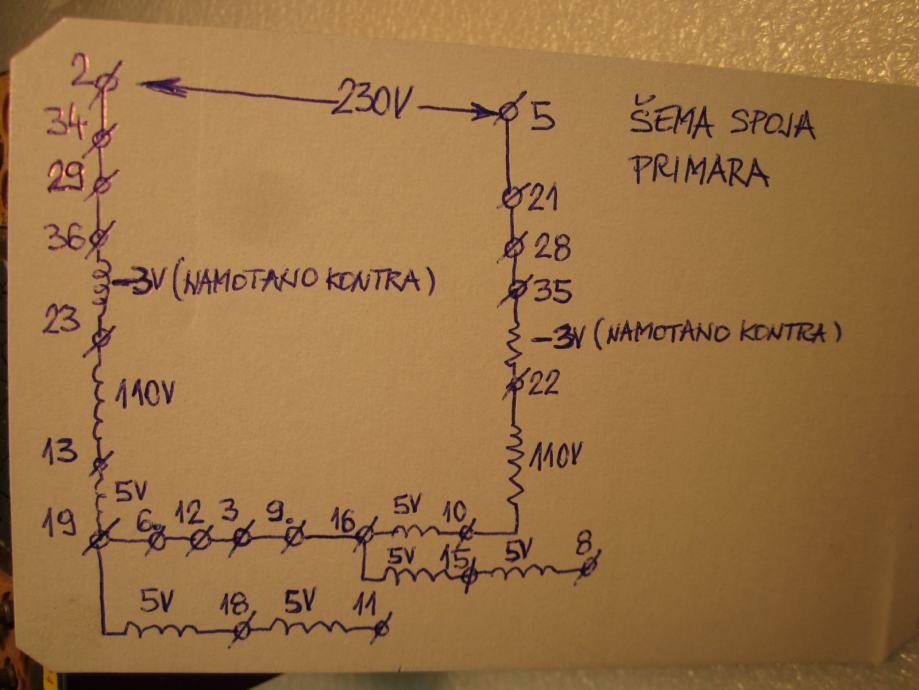 2 230V 5 ŠEMA SPOJA
PRIMARA
34
29 21
36 28
35
-3V (NAMOTANO KONTRA)
23 -3V (NAMOTANO KONTRA)
22
110V
13 110V
5V
19 6. 12 3 9. 16 5V 10
5V 15 5V 8
5V 18 5V 11